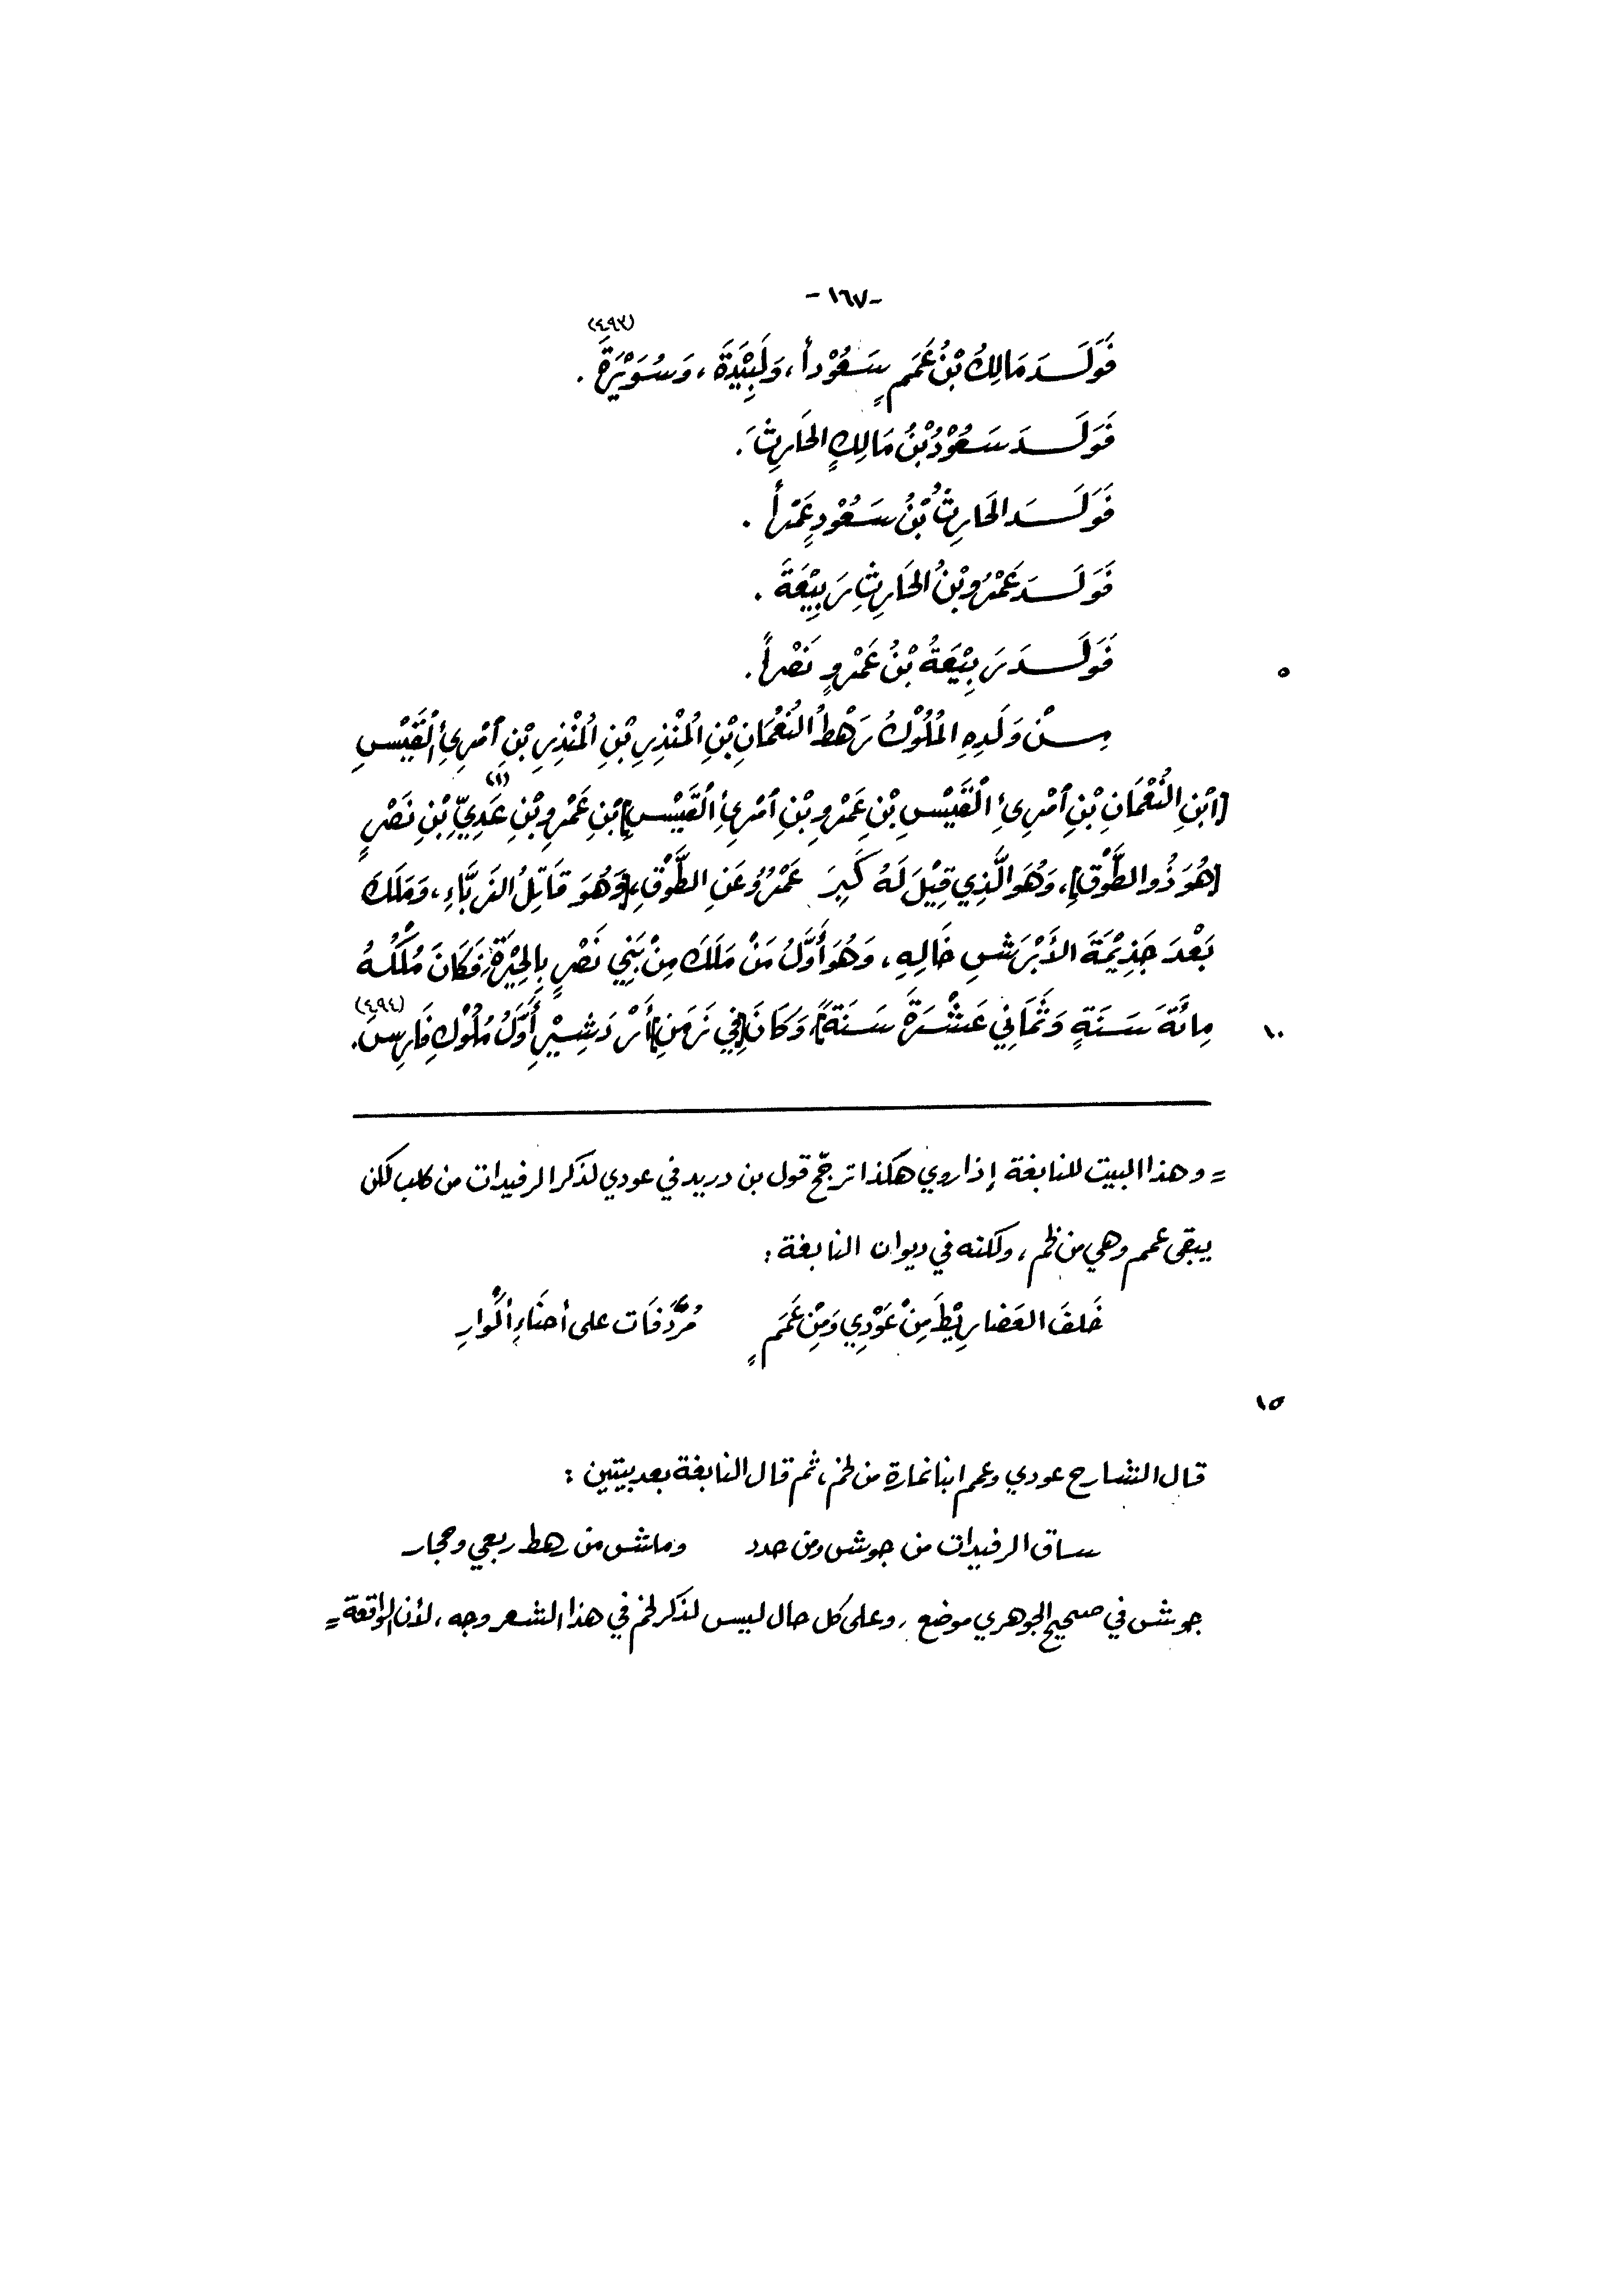 -١٦٧-
(٤٩٣)
فَوَلَدَ مَالِكُ بْنُ عَمَمٍ سَعُوْداً، وَلَبِيْدَةَ، وَسُوَيْرَةَ .
فَوَلَدَ سَعُوْدُ بْنُ مَالِكٍ الحَارِثَ .
فَوَلَدَ الحَارِثُ بْنُ سَعُوْدٍ عَمْراً .
فَوَلَدَ عَمْرُو بْنُ الحَارِثِ رَبِيْعَةَ .
فَوَلَدَ رَبِيْعَةُ بْنُ عَمْرٍو نَصْراً . ٥
مِنْ وَلَدِهِ المُلُوْكُ رَهْطُ النُّعْمَانِ بْنِ المُنْذِرِ بْنِ المُنْذِرِ بْنِ امْرِئِ القَيْسِ
[ابْنِ النُّعْمَانِ بْنِ امْرِئِ القَيْسِ بْنِ عَمْرِو بْنِ امْرِئِ القَيْسِ] بْنِ عَمْرِو بْنِ عَدِيِّ (١) بْنِ نَصْرٍ
[هُوَ ذُو الطَّوْقِ]، وَهُوَ الَّذِي قِيْلَ لَهُ كَبِرَ عَمْرٌو عَنِ الطَّوْقِ، [وَهُوَ قَاتِلُ الزَّبَّاءِ، وَمَلَكَ
بَعْدَ جَذِيْمَةَ الأَبْرَشِ خَالِهِ، وَهُوَ أَوَّلُ مَنْ مَلَكَ مِنْ بَنِي نَصْرٍ بِالحِيْرَةِ، فَكَانَ مُلْكُهُ
مِائَةَ سَنَةٍ وَثَمَانِي عَشْرَةَ سَنَةً]، وَكَانَ [فِي زَمَنِ] أَرْدَشِيْرِ أَوَّلُ مُلُوْكِ فَارِسَ (٤٩٤) . ١٠
= وهذا البيت للنابغة إذا روي هكذا ترجّح قول بن دريد في عودي لذكر الرفيدات من كلب لكن
يبقى عمم وهي من لخم، ولكنه في ديوان النابغة :
خَلفَ العَضارِيْطَ مِنْ عَوْدِي وَمِنْ عَمَمٍ    مُرَدَّفَات على أحنَاءِ أكْوارِ
١٥
قال الشارح عودي وعمم ابنا نمارة من لخم، ثم قال النابغة بعد بيتين :
ساق الرفيدات من جوش ومن حدد    وماش من رهط ربعي وحجار
جوش في صحيح الجوهري موضع، وعلى كل حال ليس لذكر لخم في هذا الشعر وجه، لأن الواقعة =